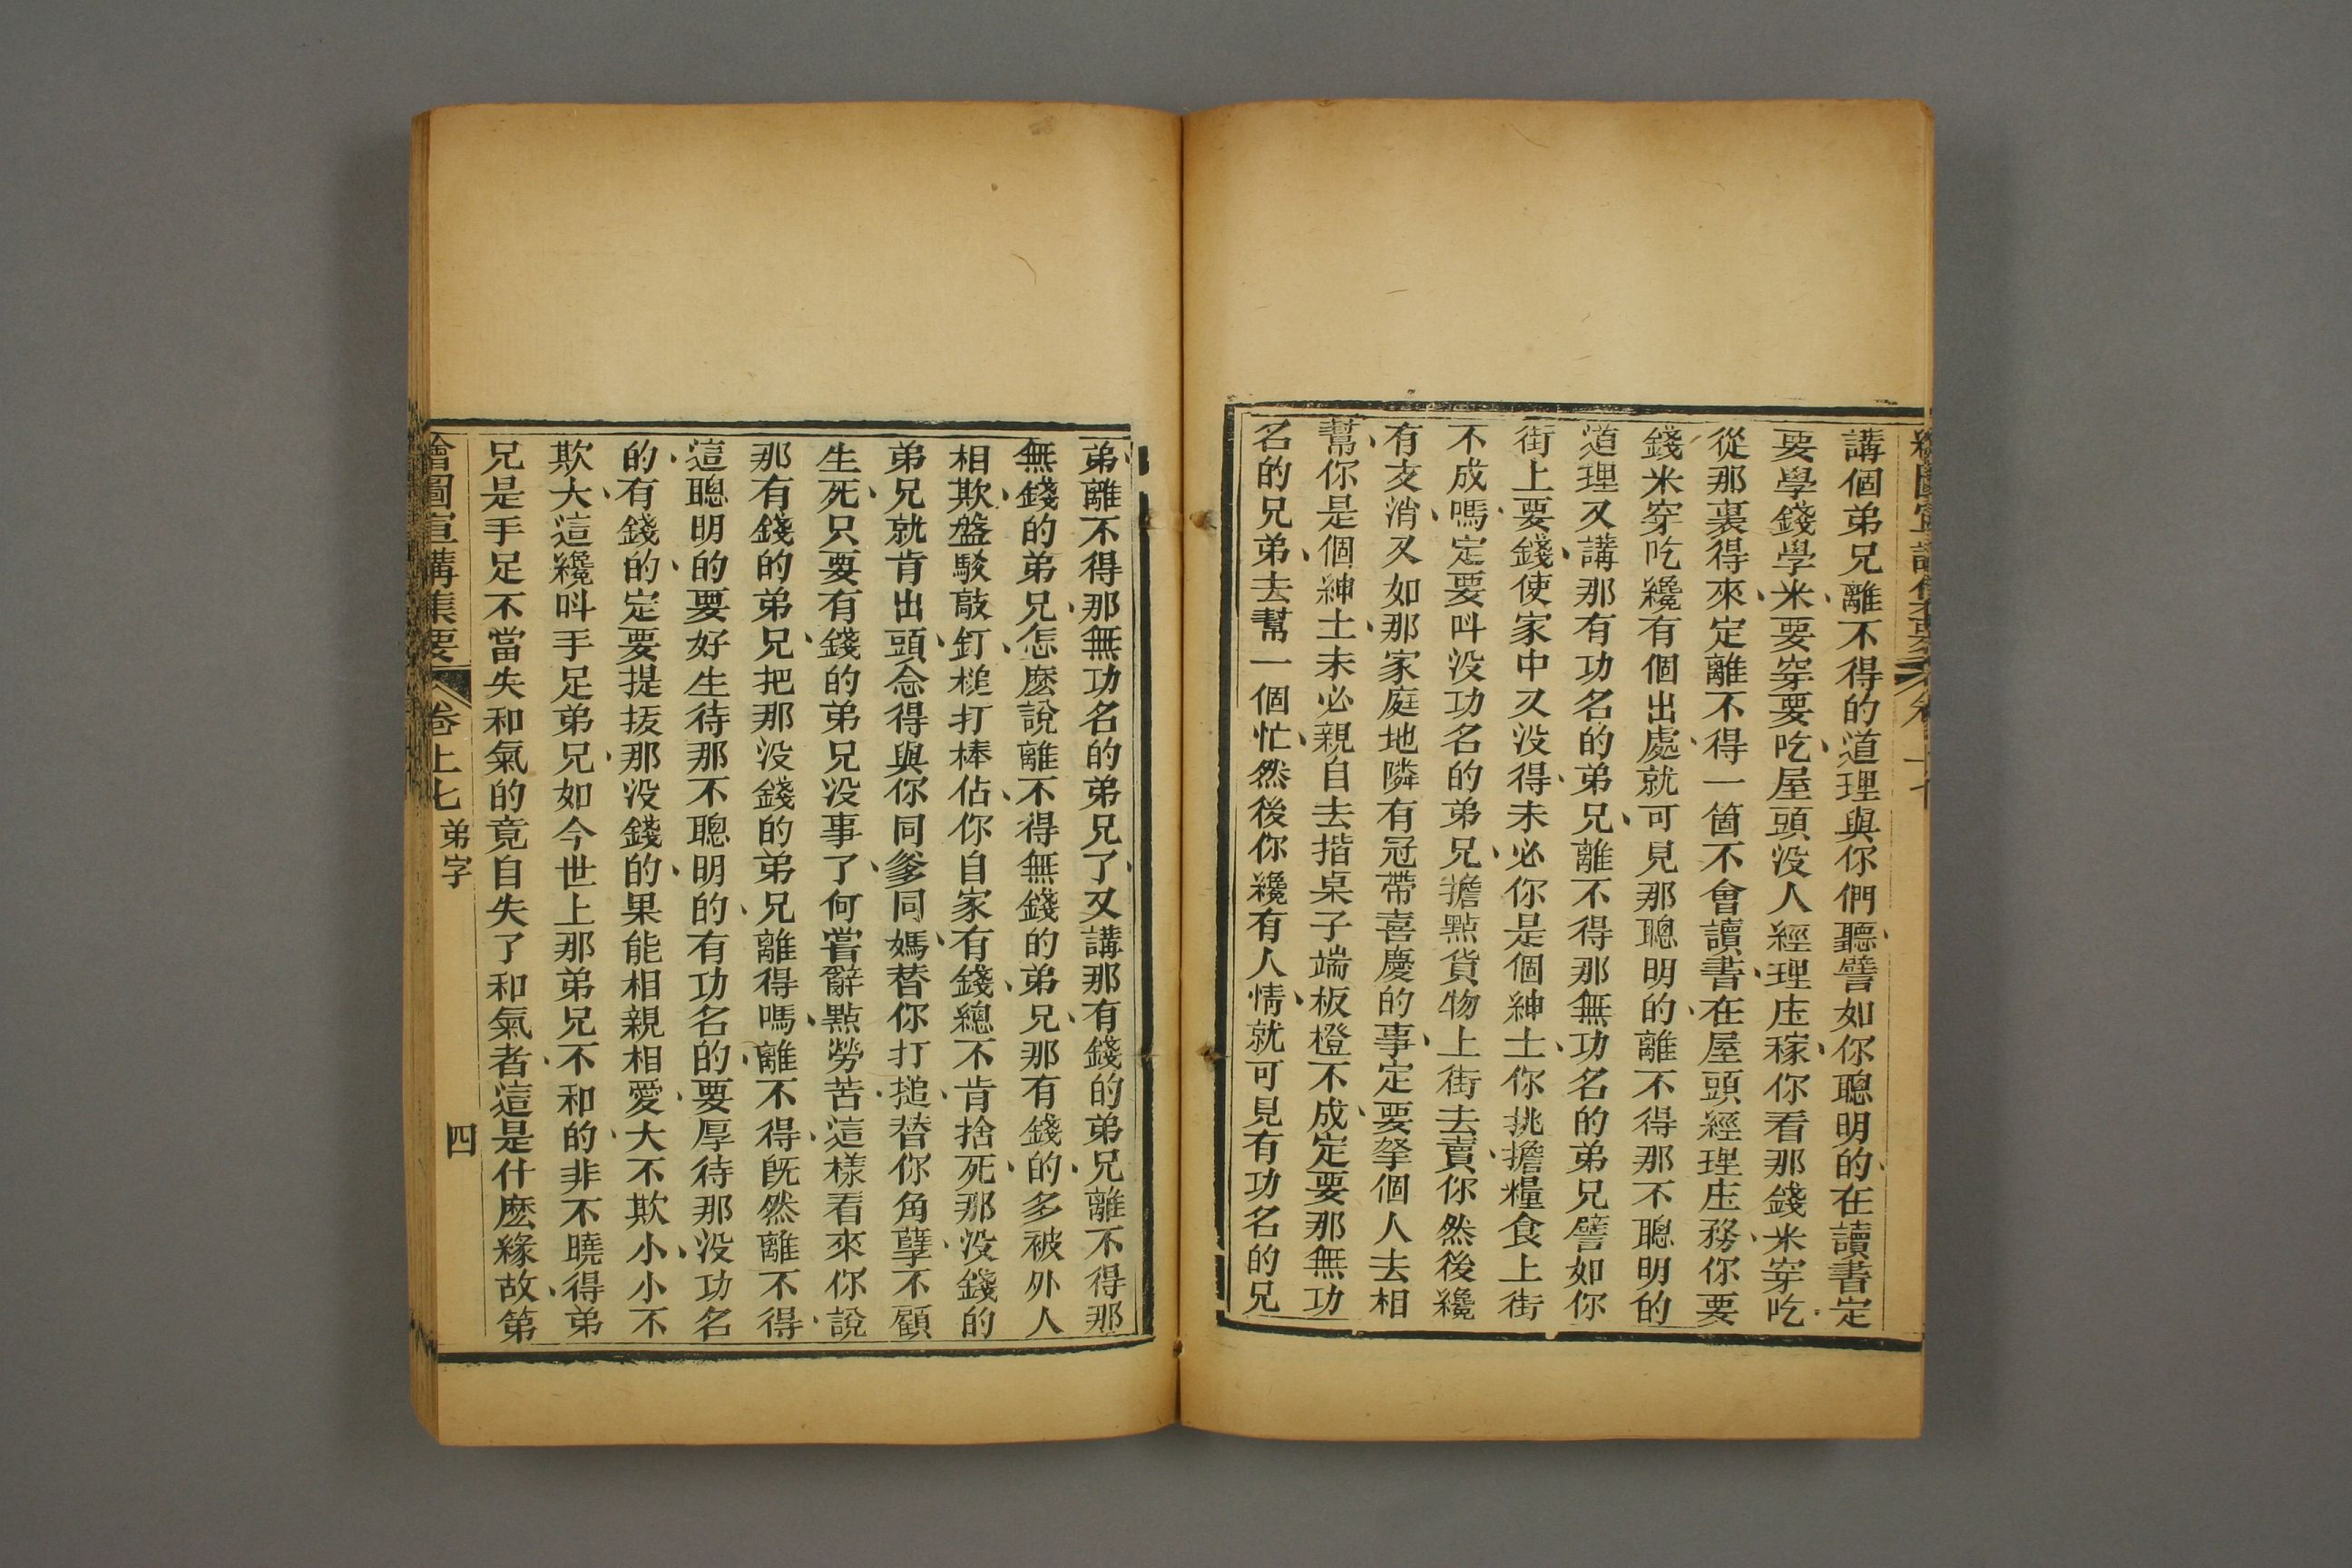 講個弟兄離不得的道理與你們聽譬如你聰明的在讀書定
要學錢學米要穿要吃屋頭没人經理庄稼你看那錢米穿吃
從那裏得來定離不得一箇不會讀書在屋頭經理庄務你要
錢米穿吃纔有個出處就可見那聰明的離不得那不聰明的
道理又講那有功名的弟兄離不得那無功名的弟兄譬如你
街上要錢使家中又没得未必你是個紳士你挑擔糧食上街
不成嗎定要呌没功名的弟兄擔點貨物上街去賣你然後纔
有支消又如那家庭地隣有冠帶喜慶的事定要拏個人去相
幫你是個紳士未必親自去揩桌子端板櫈不成定要那無功
名的兄弟去幫一個忙然後你纔有人情就可見有功名的兄
弟離不得那無功名的弟兄了又講那有錢的弟兄離不得那
無錢的弟兄怎麽說離不得無錢的弟兄那有錢的多被外人
相欺盤駁敲釘槌打棒佔你自家有錢總不肯捨死那没錢的
弟兄就肯出頭念得與你同爹同媽替你打搥替你角孽不顧
生死只要有錢的弟兄没事了何嘗辭點勞苦這樣看來你說
那有錢的弟兄把那没錢的弟兄離得嗎離不得既然離不得
這聰明的要好生待那不聰明的有功名的要厚待那没功名
的有錢的定要提拔那没錢的果能相親相愛大不欺小小不
欺大這纔呌手足弟兄如今世上那弟兄不和的非不曉得弟
兄是手足不當失和氣的竟自失了和氣者這是什麽緣故第
繪圖宣講集要 卷上七 弟字 四